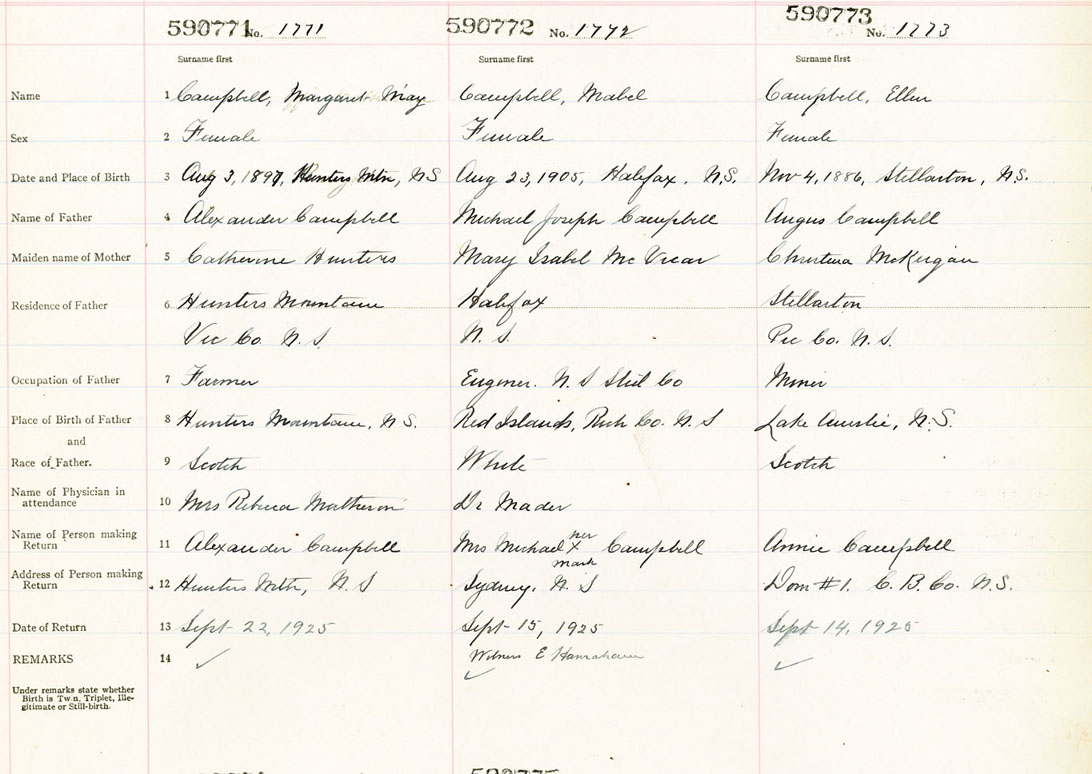 590771 No. 1771 590772 No. 1772 590773 No. 1773
Surname first Surname first Surname first
Name 1 Campbell, Margaret May Campbell, Mabel Campbell, Ellen
Sex 2 Female Female Female
Date and Place of Birth 3 Aug 3, 1897, Hunters Mtn, NS Aug 23, 1905, Halifax. N.S. Nov 4, 1886, Stellarton, N.S.
Name of Father 4 Alexander Campbell Michael Joseph Campbell Angus Campbell
Maiden name of Mother 5 Catherine Hunters Mary Isabel Mc Vicar Christina McKeigan
Residence of Father 6 Hunters Mountain Halifax Stellarton
Vic Co N.S. N.S. Pic Co. N.S.
Occupation of Father 7 Farmer Engineer. N.S Steel Co Miner
Place of Birth of Father 8 Hunters Mountain, N S. Red Islands, Rich Co. N.S Lake Ainslie, N.S.
and
Race of Father. 9 Scotch White Scotch
Name of Physician in
attendance 10 Mrs Rebecca Matheson Dr Mader
Name of Person making
Return 11 Alexander Campbell Mrs Michael her X mark Campbell Annie Campbell
Address of Person making
Return 12 Hunters Mtn, N.S Sydney, N.S Dom #1. C.B. Co. N.S.
Date of Return 13 Sept 22, 1925 Sept 15, 1925 Sept 14, 1925
REMARKS 14 ✓ Witness E Hanrahan ✓
✓
Under remarks state whether
Birth is Twin, Triplet, Ille-
gitimate or Still-birth.